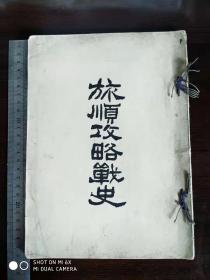 旅順攻略戰史
SHOT ON MI 6X
AI DUAL CAMERA